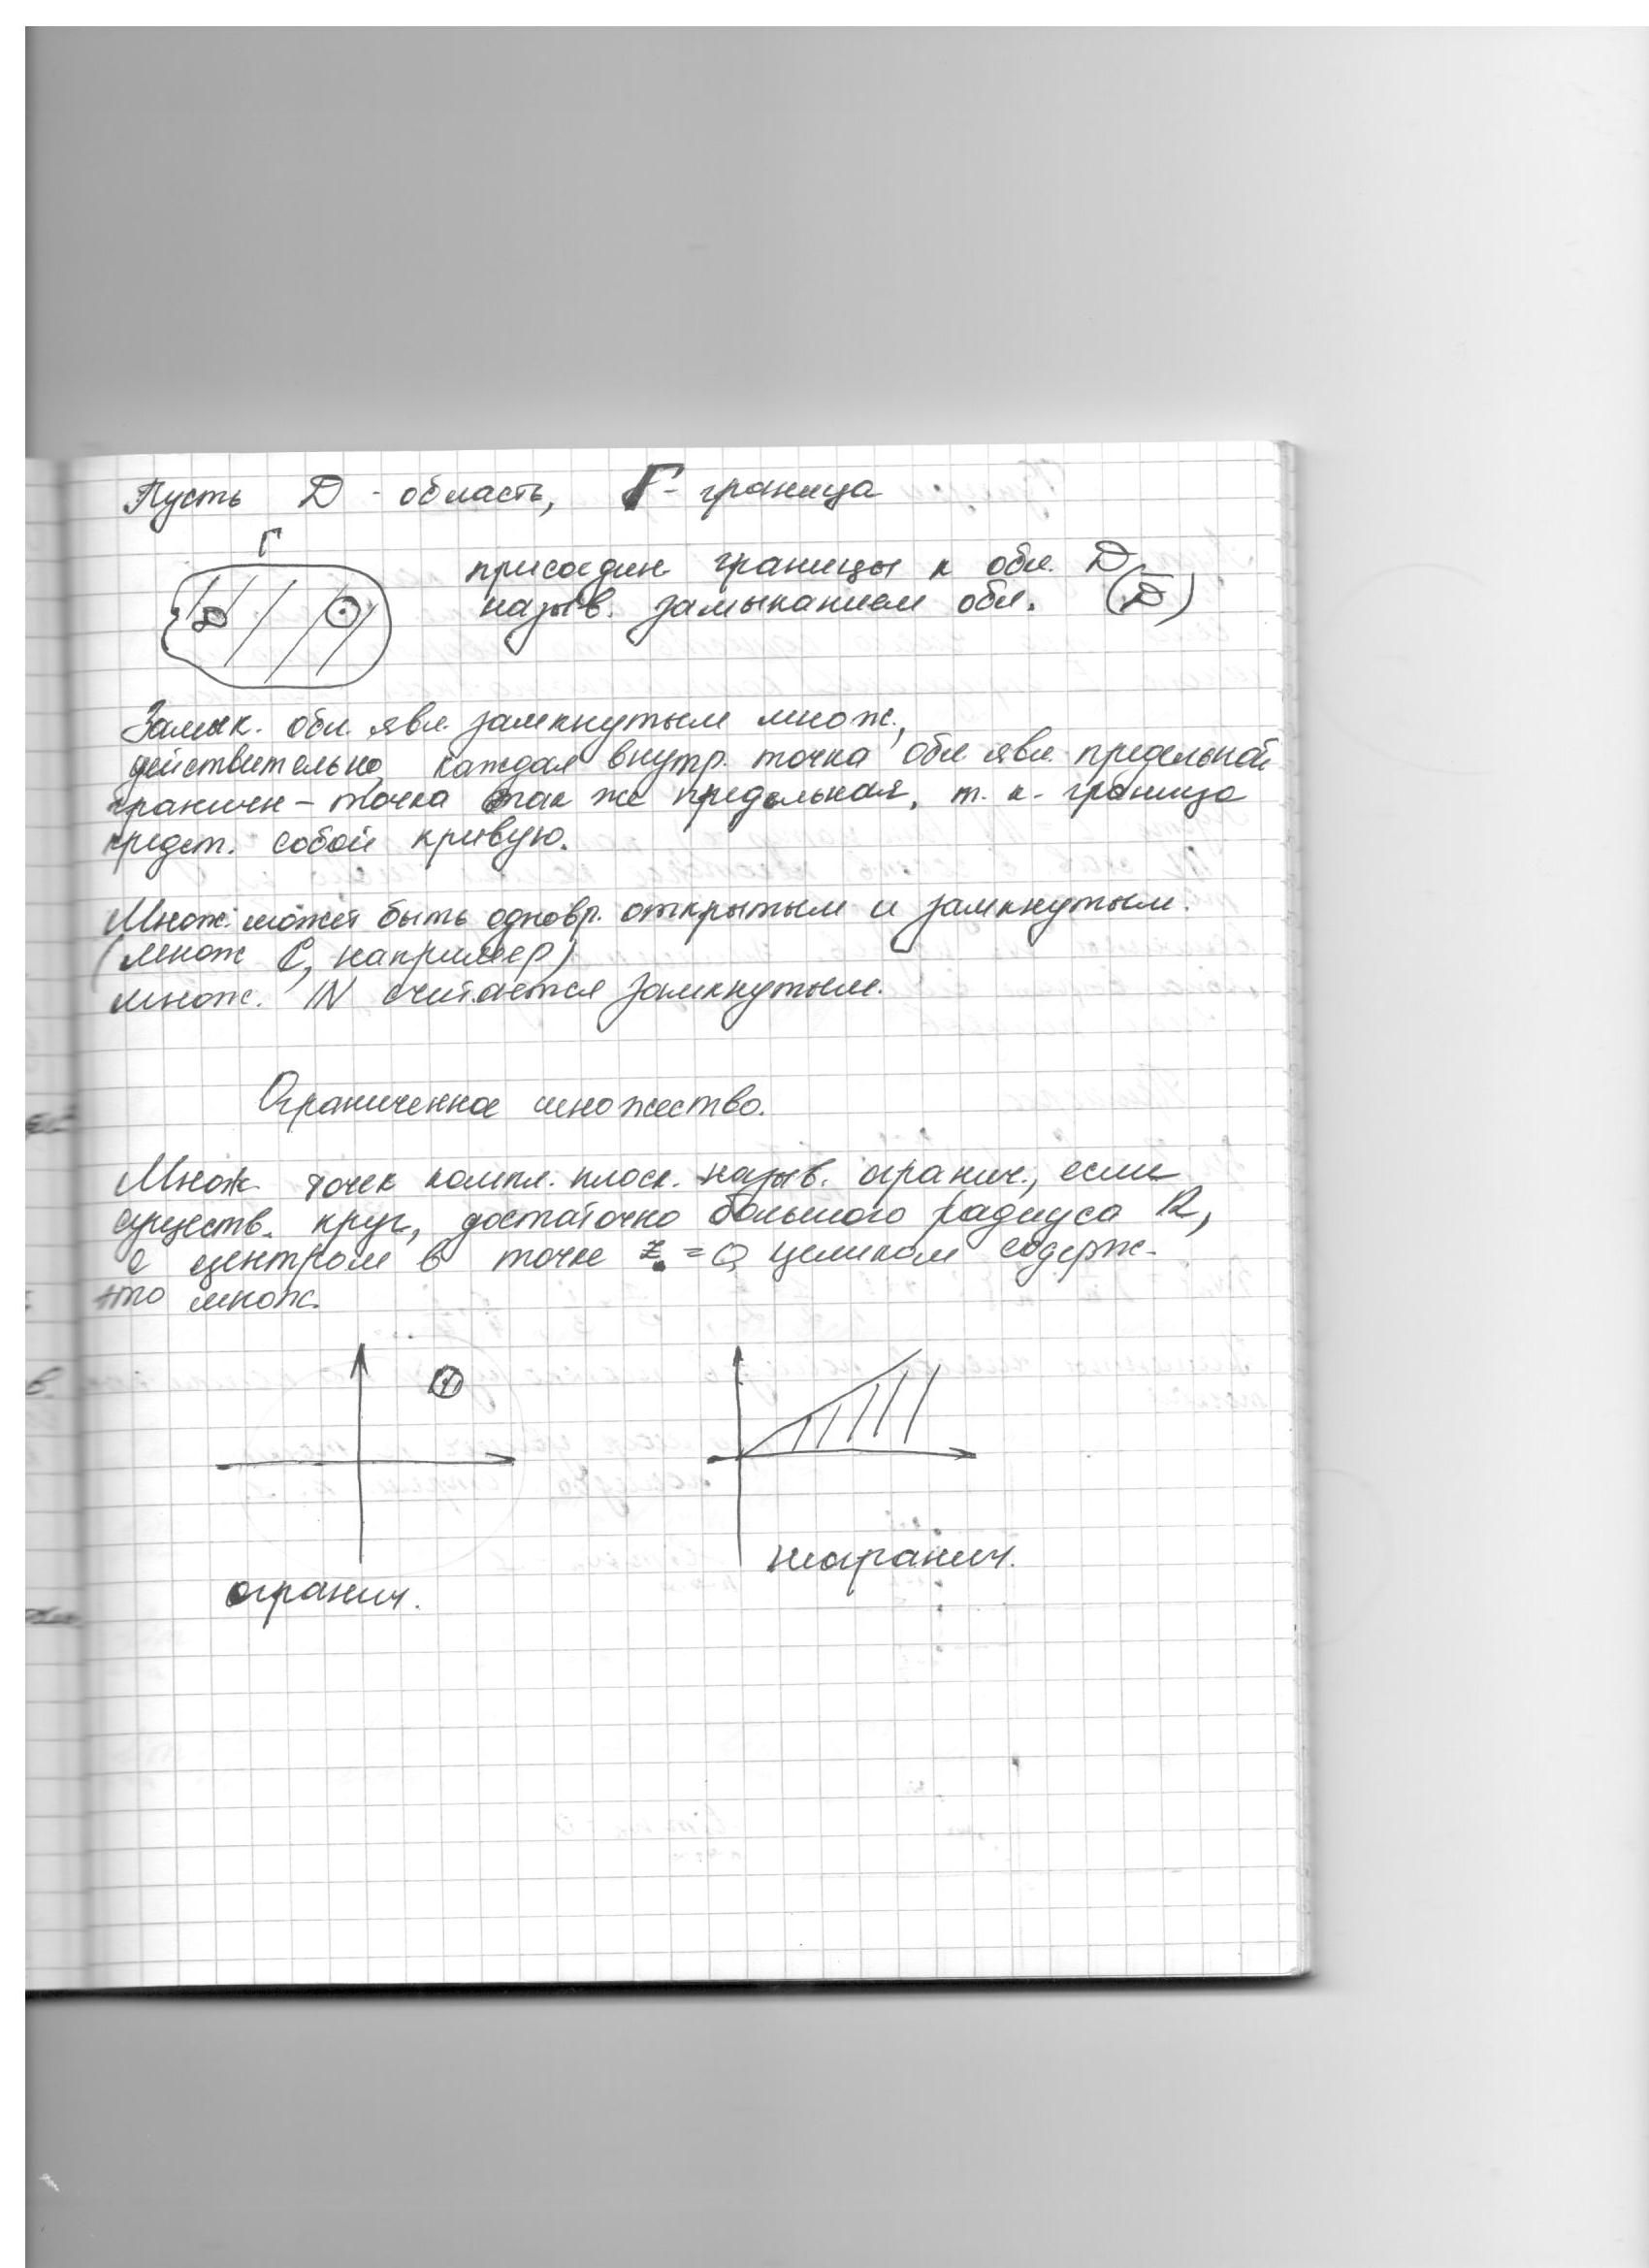 Пусть D - область, Г - граница
Г
D
присоедин границы к обл. D
назыв. замыканием обл. (D̅)
Замык. обл. явл. замкнутым множ.,
действительно, каждая внутр. точка обл явл. предельной
граничн - точка так же предельная, т. к. граница
предст. собой кривую.
Множ. может быть одновр. открытым и замкнутым.
(множ ℂ, например)
множ. ℕ считается замкнутым.
Ограниченное множество.
Множ. точек компл. плоск. назыв. огранич., если
существ. круг, достаточно большого радиуса R,
с центром в точке z = 0, целиком содерж.
это множ.
огранич.
неогранич.